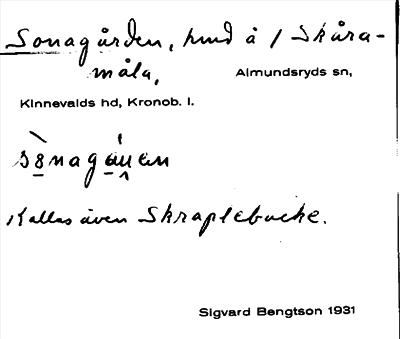 Sonagården, hmd å / Skåra-
måla,
Almundsryds sn,
Kinnevalds hd, Kronob. l.
Kallas även Skraplebacke.
Sigvard Bengtson 1931